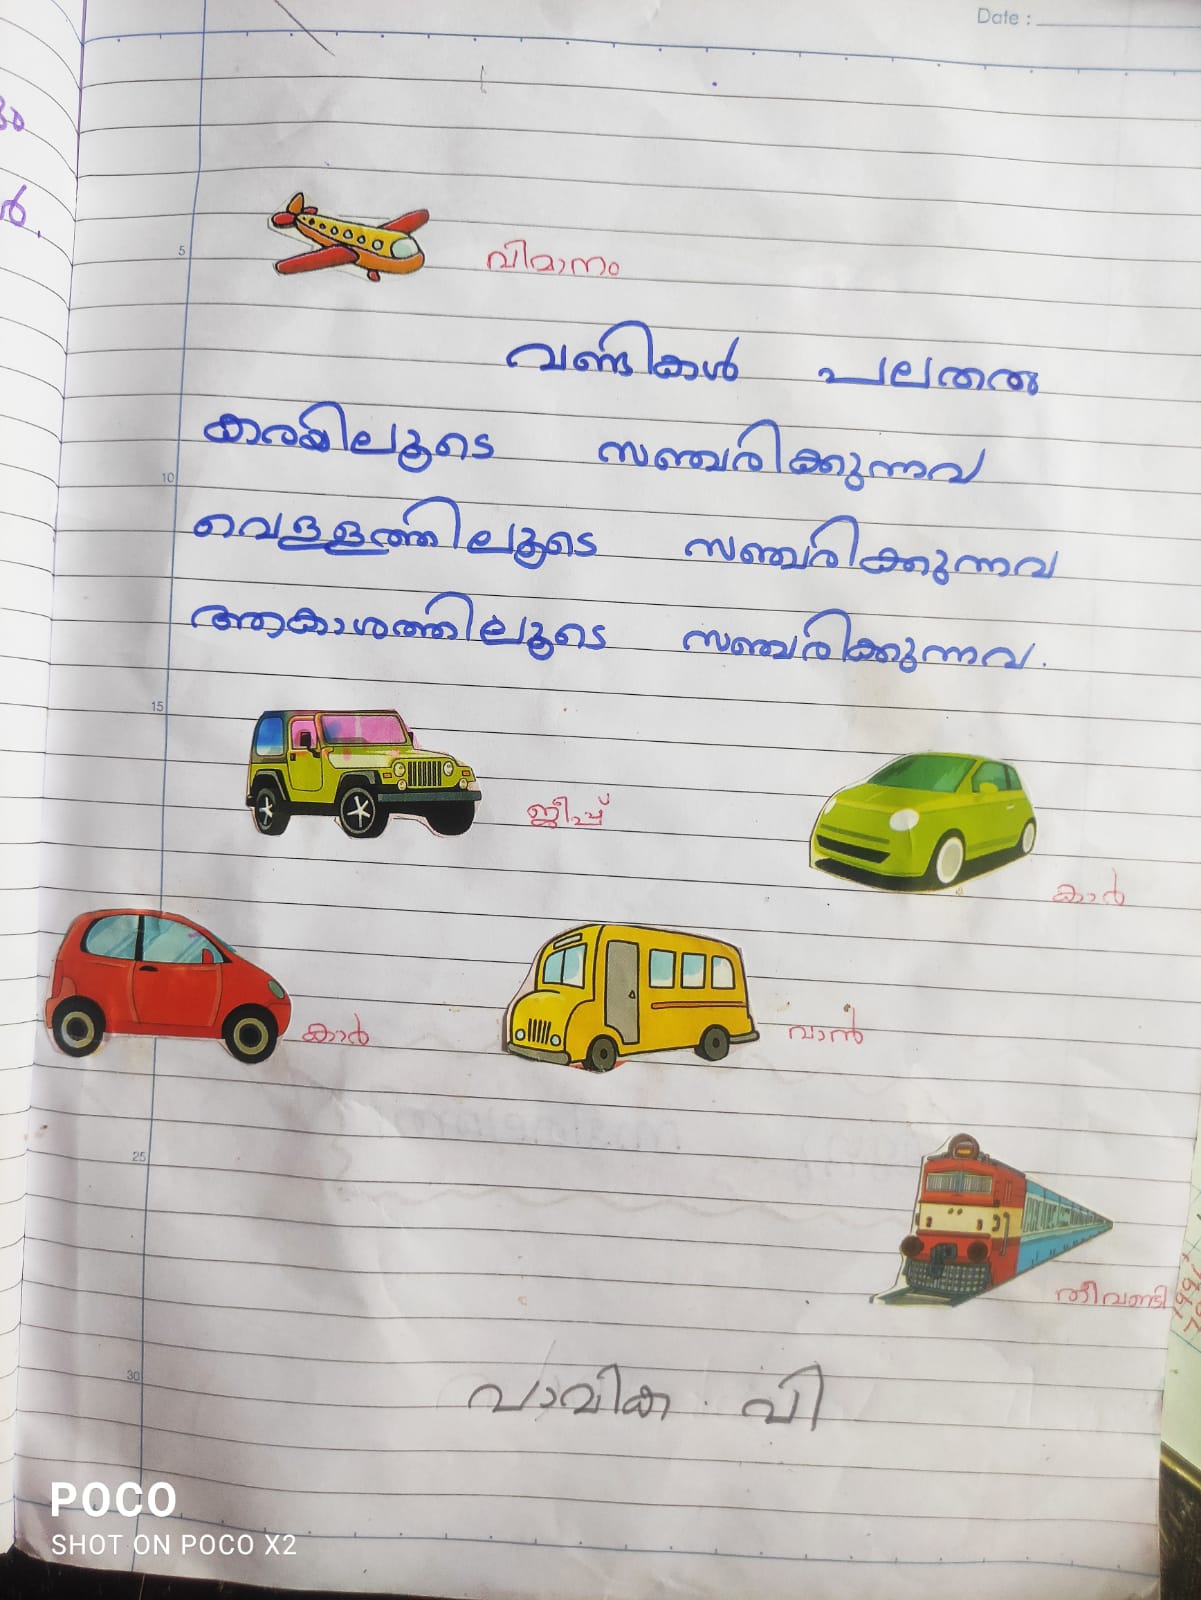 Date :
5
വിമാനം
വണ്ടികൾ പലതരം
കരയിലൂടെ സഞ്ചരിക്കുന്നവ
10
വെള്ളത്തിലൂടെ സഞ്ചരിക്കുന്നവ
ആകാശത്തിലൂടെ സഞ്ചരിക്കുന്നവ.
15
ജീപ്പ്
കാർ
കാർ
വാൻ
25
തീവണ്ടി
30
വി
POCO
SHOT ON POCO X2